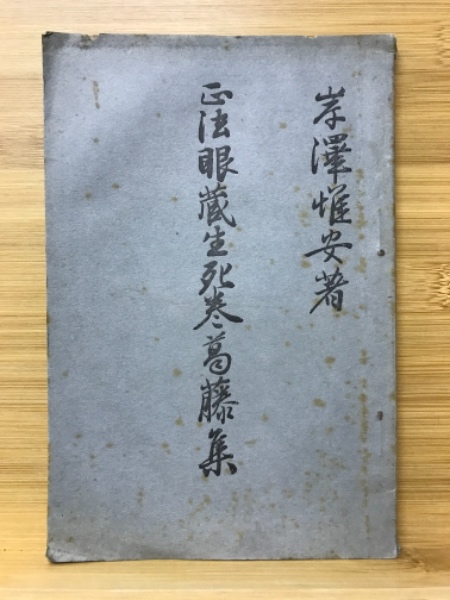 岸澤惟安著
正法眼蔵生死巻葛藤集